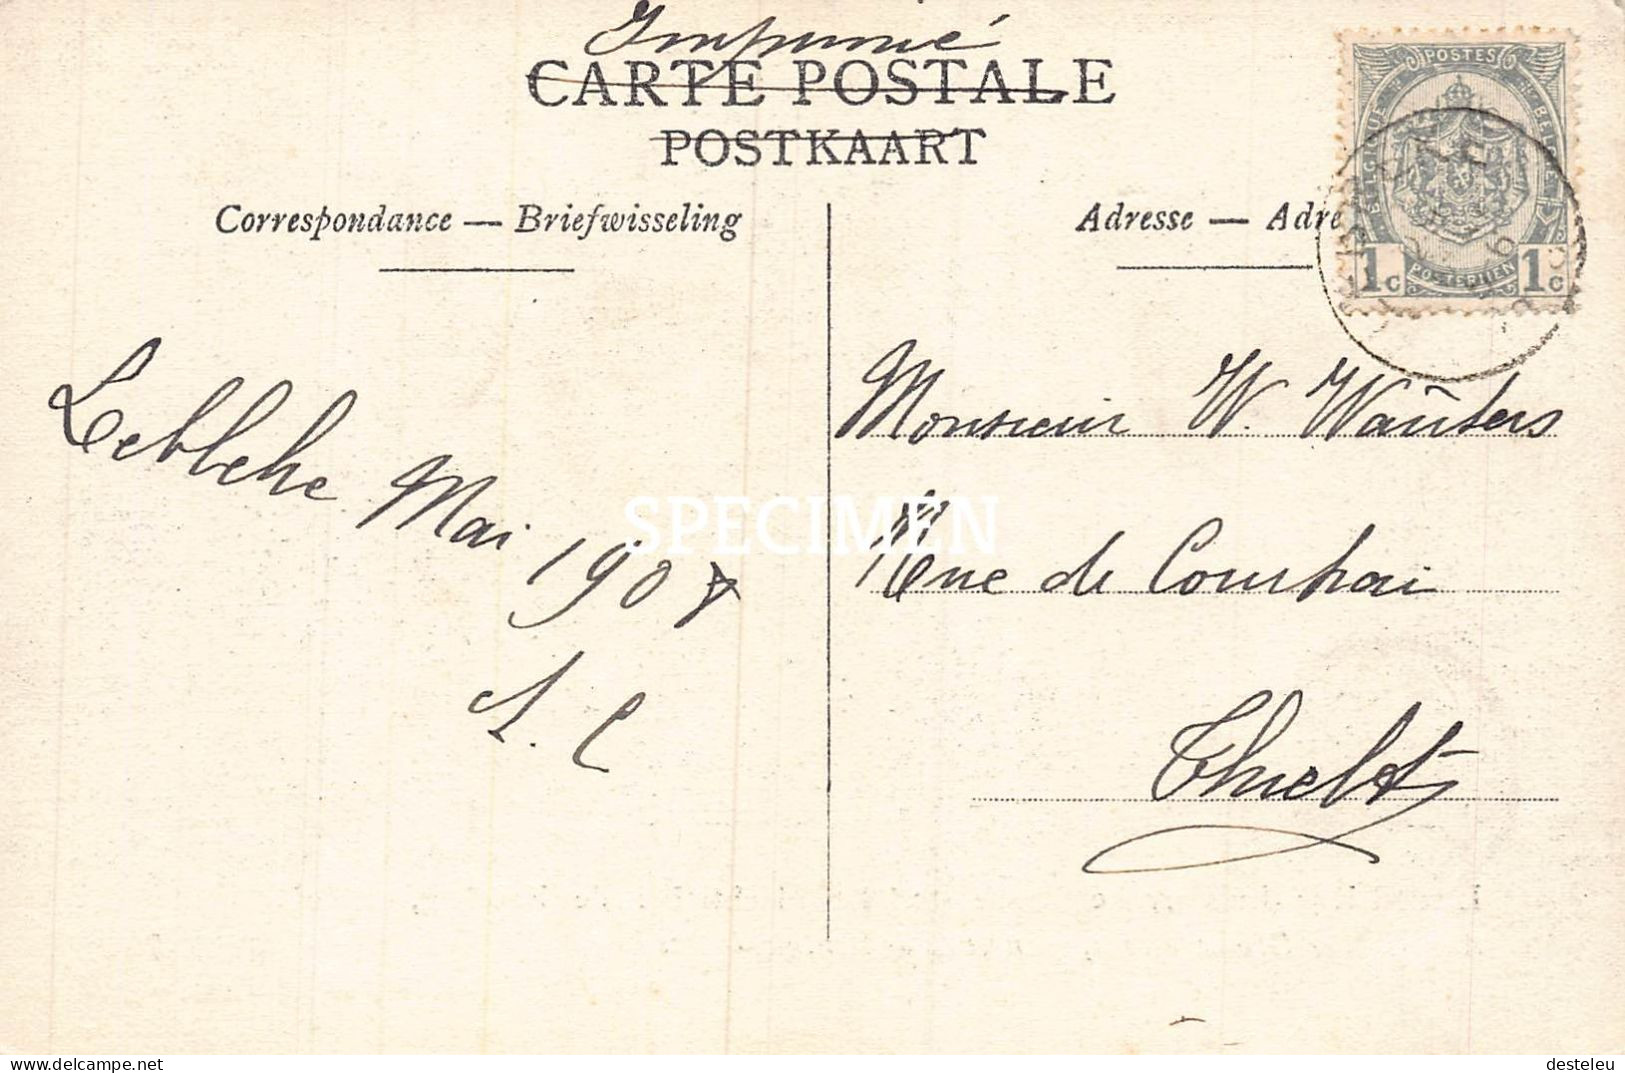 Imprimé
CARTE POSTALE
POSTKAART
Correspondance — Briefwisseling
Adresse — Adre
POSTES
BELGIQUE
BELGIË
1c POSTERIJEN 1c
Lebbeke Mai 1908
A. C
Monsieur W. Wauters
Rue de Courtrai
Thielt
SPECIMEN
delcampe.net
desteleu